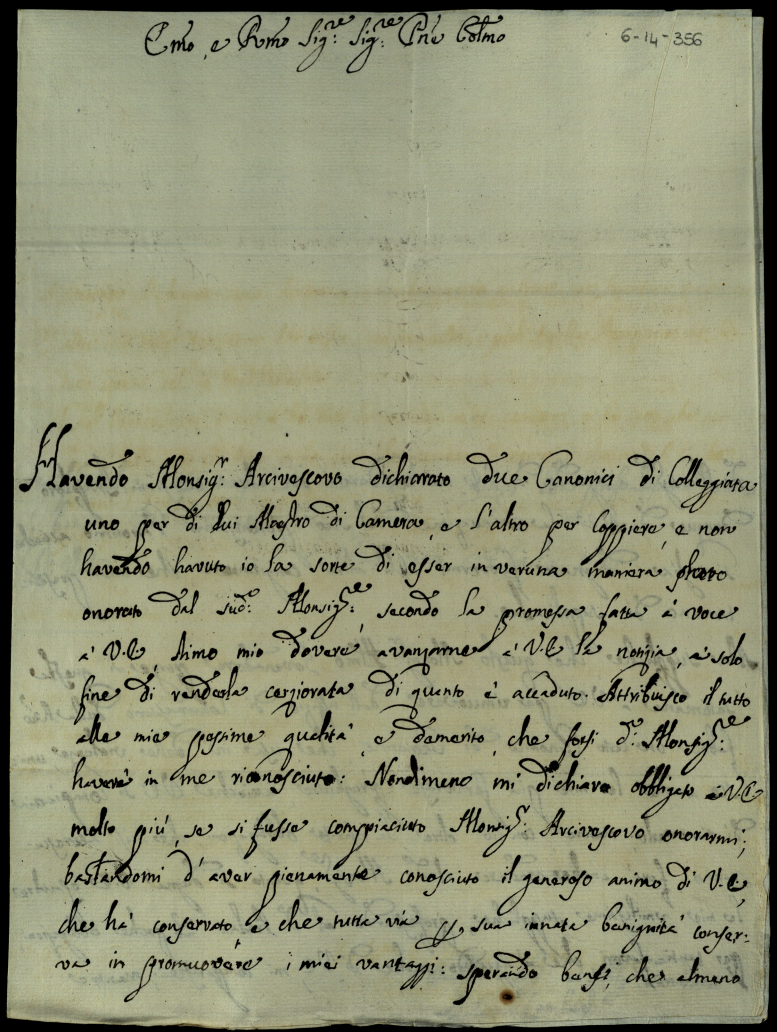 Emo, e Rmo Sig:re Sig:re Pne Colmo
6-14-356
Havendo Monsig:r Arcivescovo dichiarato due Canonici di Colleggiata
uno per di lui Mastro di Camera, e l'altro per Coppiere, e non
havendo havuto io la sorte di esser in veruna maniera
onorato dal sud:o Monsig:re, secondo la promessa fatta à voce
à V.E., stimo mio dovere avanzarne à V.E. la notizia, à solo
fine di renderla cerziorata di quanto è accaduto. Attribuisco il tutto
alle mie pessime qualità, e demerito, che forsi d:o Monsig:re
haverà in me riconosciuto: Nondimeno mi dichiaro obbligato à V.E.
molto più, se si fusse compiaciuto Monsig:r Arcivescovo onorarmi;
bastandomi d'aver pienamente conosciuto il generoso animo di V.E.,
che hà conservato, e che tutta via sua innata benignità conser-
va in promuovere i miei vantaggi: sperando bensì, che almeno